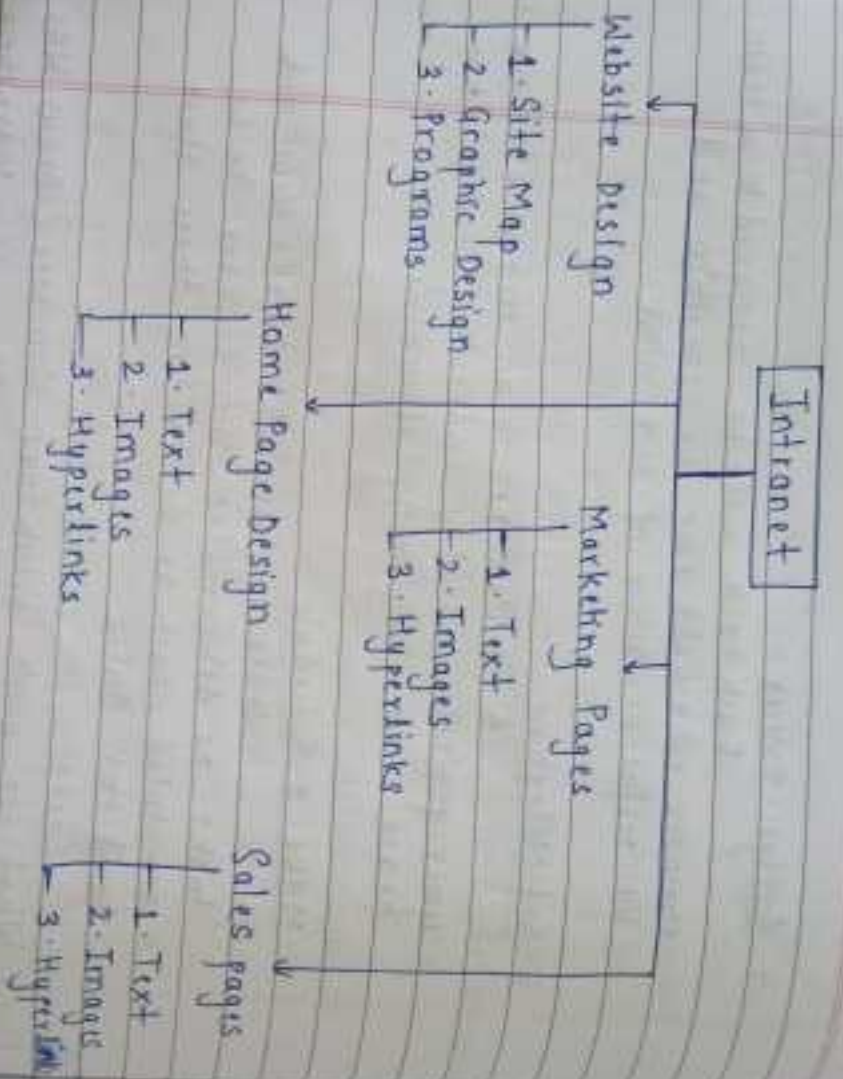 Intranet
Website Design
1. Site Map
2. Graphic Design
3. Programs.
Home Page Design
1. Text
2. Images
3. Hyperlinks
Marketing Pages
1. Text
2. Images
3. Hyperlinks
Sales pages
1. Text
2. Images
3. Hyperlink